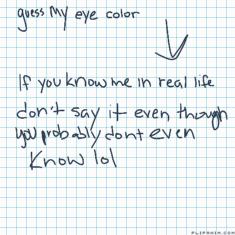 guess my eye color
If you know me in real life
don't say it even though
you probably dont even
know lol
FLIPANIM.COM